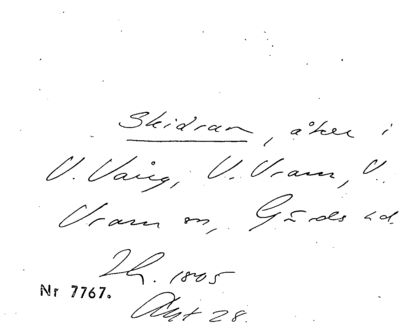 Skidran, åker i
V. Vång, V. Vram, V.
Vram sn, Gärds hd.
Lh. 1805
Nr 7767.
Akt 28.